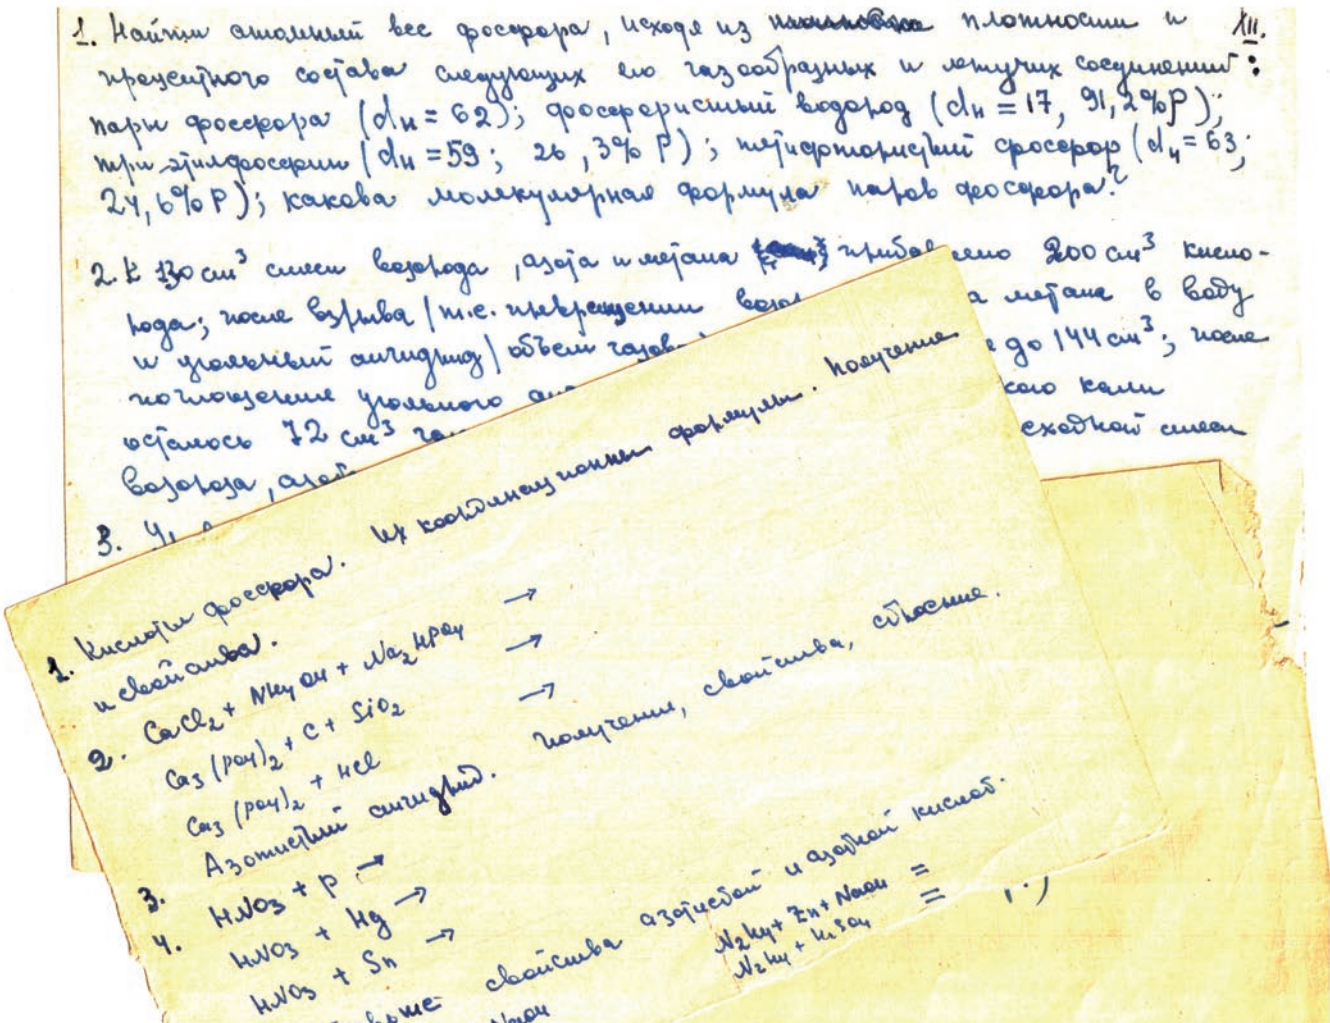 1. Найти атомный вес фосфора, исходя из плотности и XII.
процентного состава следующих его газообразных и летучих соединений:
пары фосфора (dн = 62); фосфористый водород (dн = 17, 91,2% P);
три-этилфосфин (dн = 59; 26,3% P); пятифтористый фосфор (dн = 63;
24,6% P); какова молекулярная формула паров фосфора?
2. К 130 см³ смеси водорода, азота и метана прибавлено 200 см³ кисло-
рода; после взрыва /т.е. превращении а метана в воду
и угольный ангидрид/ объем газов до 144 см³; после
поглощения угольного кали
осталось 72 см³ исходной смеси
водорода,
3.
1. Кислоты фосфора. Их координационные формулы. Получение
и свойства.
2. CaCl₂ + NH₄OH + Na₂HPO₄ →
Ca₃(PO₄)₂ + C + SiO₂ →
Ca₃(PO₄)₂ + HCl →
3. Азотистый ангидрид. Получение, свойства, строение.
4. HNO₃ + P →
HNO₃ + Hg →
HNO₃ + Sn →
свойства азотистой и азотной кислот.
N₂H₄ + Zn + NaOH =
N₂H₄ + H₂SO₄ =
NaOH